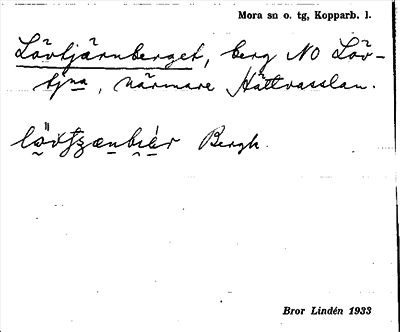 Mora sn o. tg, Kopparb. l.
Lövtjärnberget, berg NO Löv-
tjna, närmare Hättvasslan.
Bergk.
Bror Lindén 1933